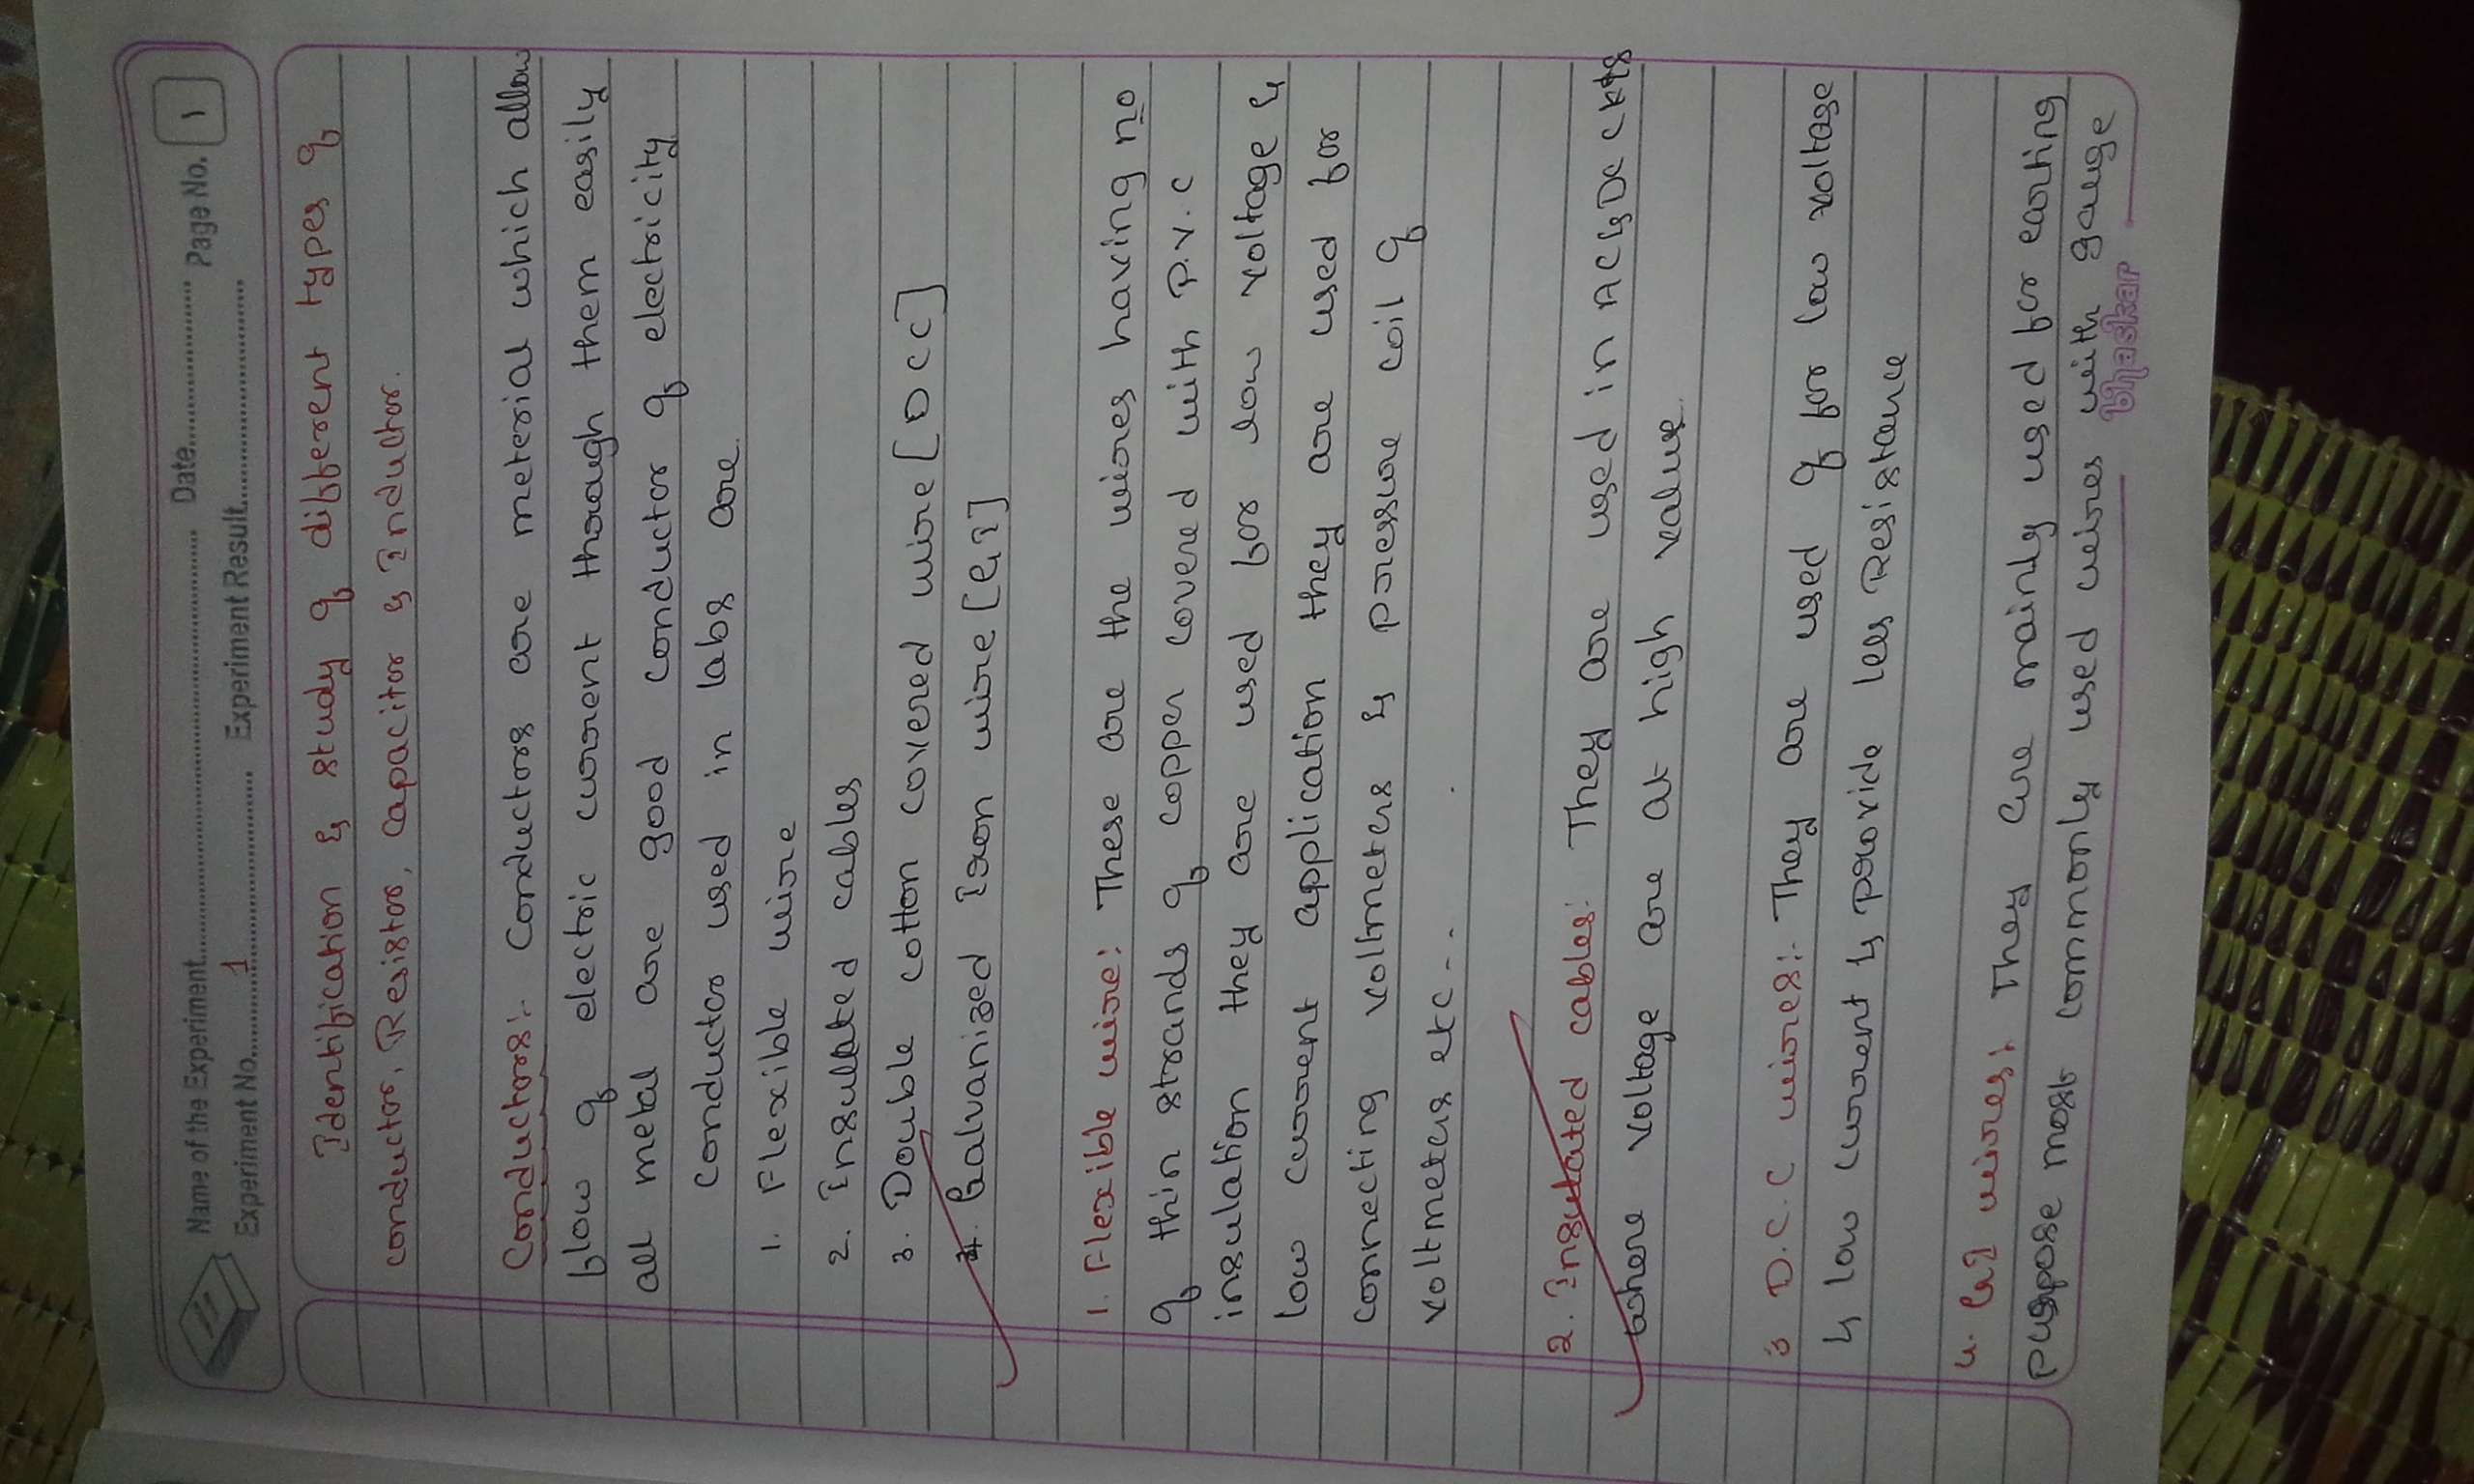 Name of the Experiment.......... Date.......... Page No. 1
Experiment No. 1 Experiment Result..........
Identification & study of different types of
conductor, Resistor, Capacitor & Inductor.
Conductors:- Conductors are meterial which allow
flow of electric current through them easily
all metal are good conductor of electricity
Conductor used in labs are
1. Flexible wire
2. Insullated cables
3. Double cotton covered wire [DCC]
4. Galvanized Iron wire [GI]
1. Flexible wire: These are the wires having no
of thin strands of copper covered with P.V.C
insulation they are used for low voltage &
low current application they are used for
connecting voltmeters & pressure coil of
voltmeters etc...
2. Insulated cables: They are used in AC & DC ckts
where voltage are at high value.
3 D.C.C wires:- They are used of for low voltage
& low current & provide less Resistance
4. GI wires: They are mainly used for earting
puspose most commonly used wires with gauge
bhaskar